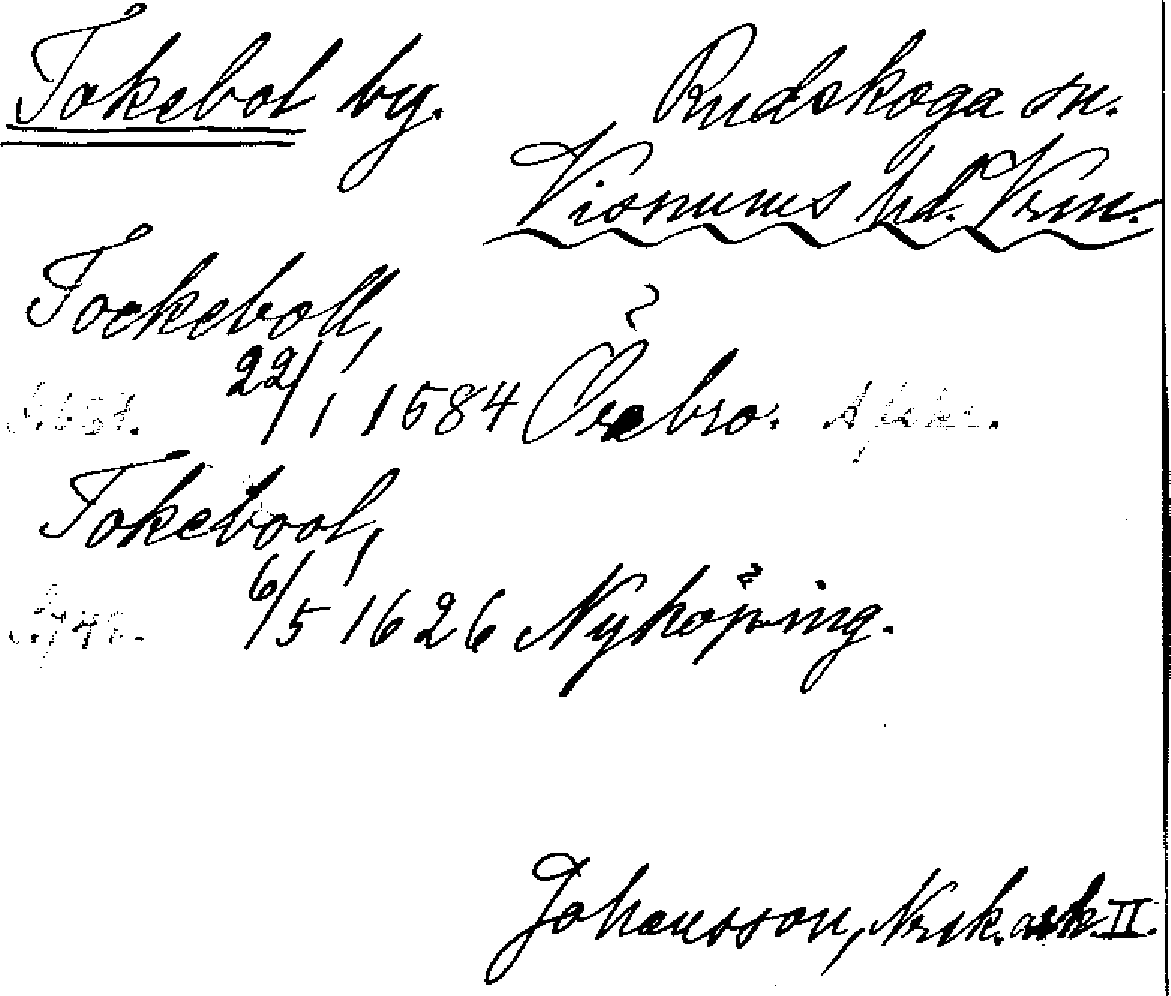 Tokebol by. Rudskoga sn.
Visnums hd. Vrm.
Tockeboll,
22/1 1584 Örebro.
Tokebool,
6/5 1626 Nyköping.
Johansson, Nrk. ark. II.